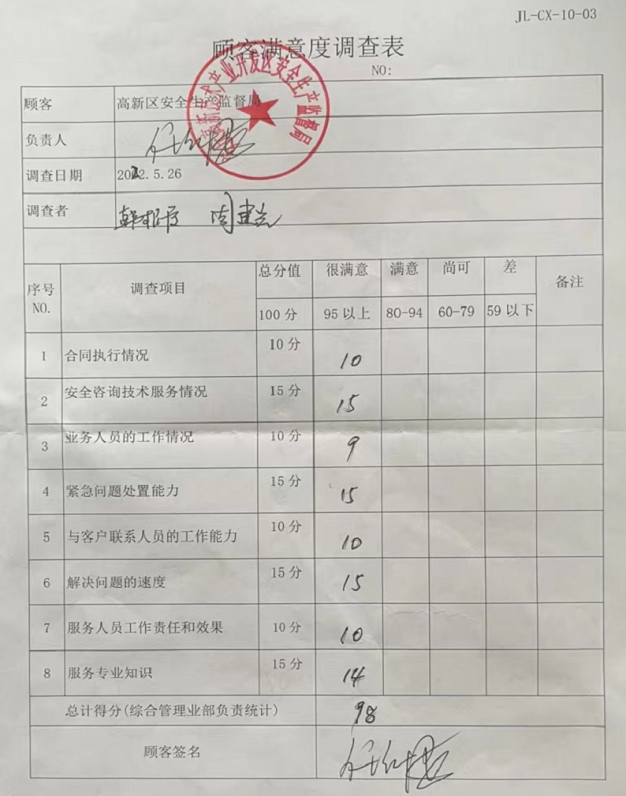 JL-CX-10-03
顾客满意度调查表
NO:
顾客 高新区安全生产监督局
负责人
调查日期 2022.5.26
调查者
序号 NO. 调查项目 总分值 很满意 满意 尚可 差 备注
100 分 95 以上 80-94 60-79 59 以下
1 合同执行情况 10 分 10
2 安全咨询技术服务情况 15 分 15
3 业务人员的工作情况 10 分 9
4 紧急问题处置能力 15 分 15
5 与客户联系人员的工作能力 10 分 10
6 解决问题的速度 15 分 15
7 服务人员工作责任和效果 10 分 10
8 服务专业知识 15 分 14
总计得分(综合管理业部负责统计) 98
顾客签名